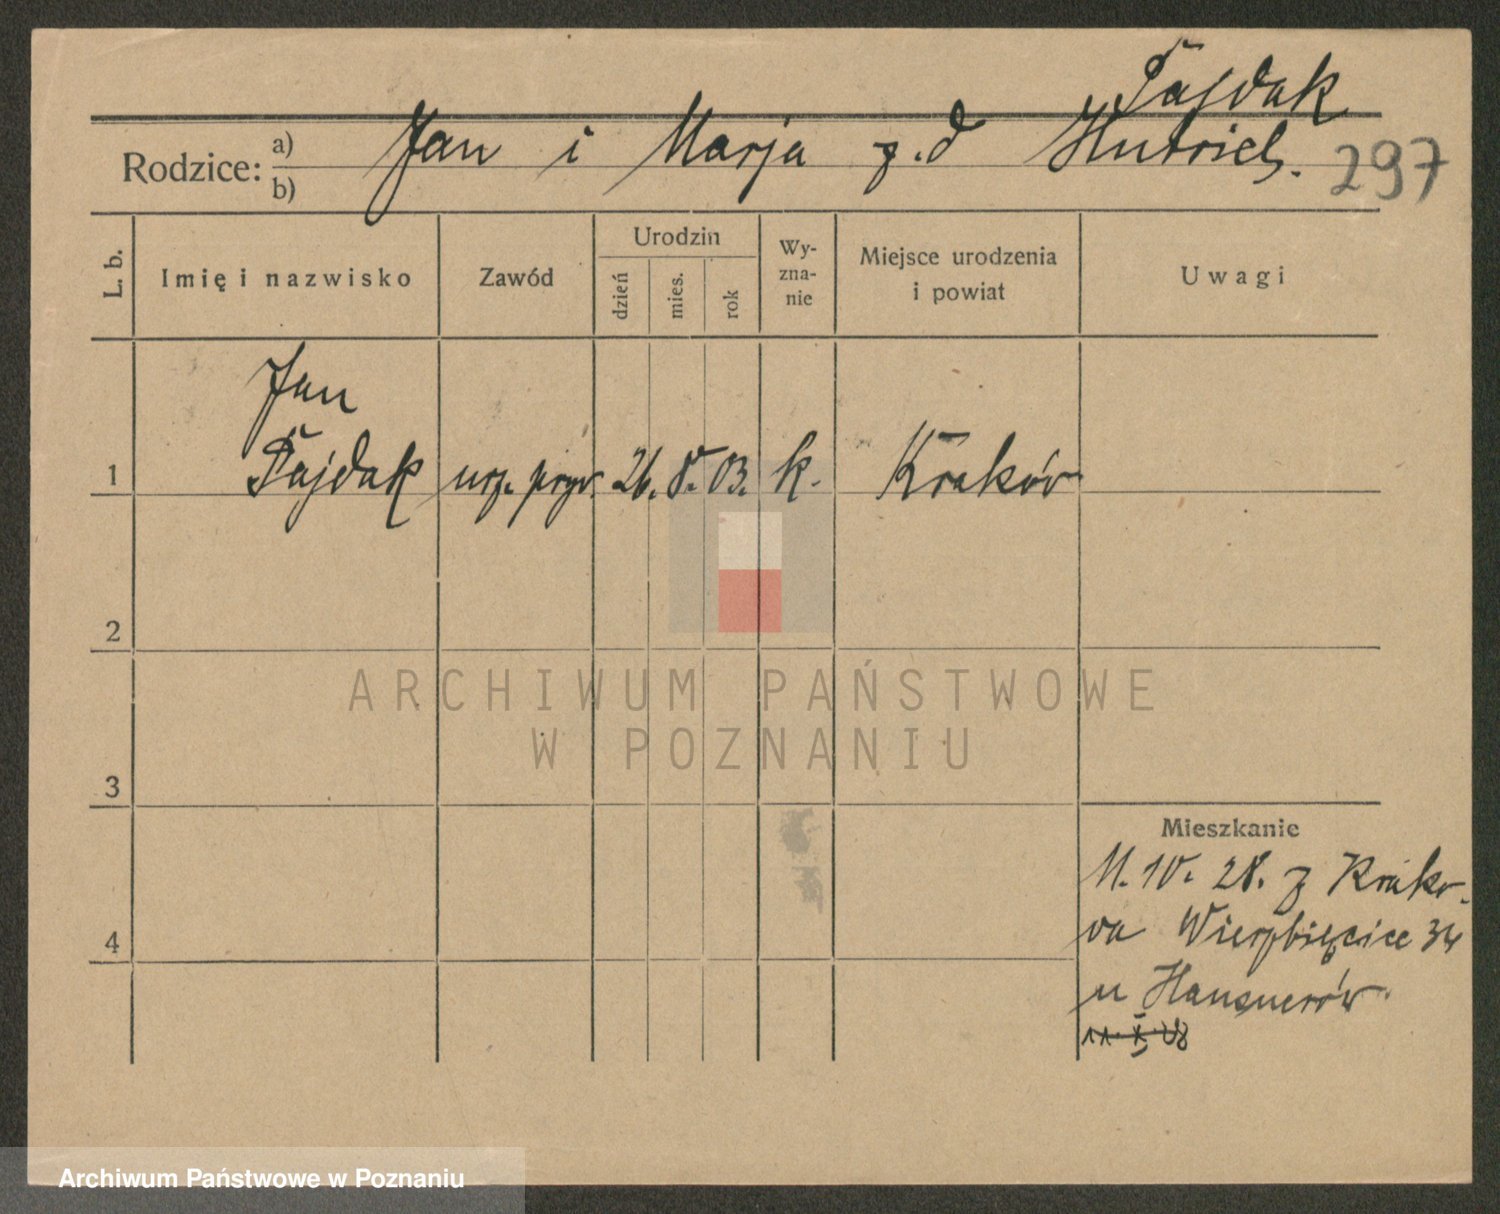 Pajdak
Rodzice: a) b) Jan i Marja z.d Hutriel.
297
L. b. Imię i nazwisko Zawód Urodzin dzień mies. rok Wy-zna-nie Miejsce urodzenia i powiat Uwagi
Jan
1 Pajdak urz. pryw. 26. 8. 03. k. Kraków
2
ARCHIWUM PAŃSTWOWE
W POZNANIU
3
Mieszkanie
11. 10. 28. z Krako-
4 wa Wierzbięcice 34
u Hausnerów
11. X. 28
Archiwum Państwowe w Poznaniu